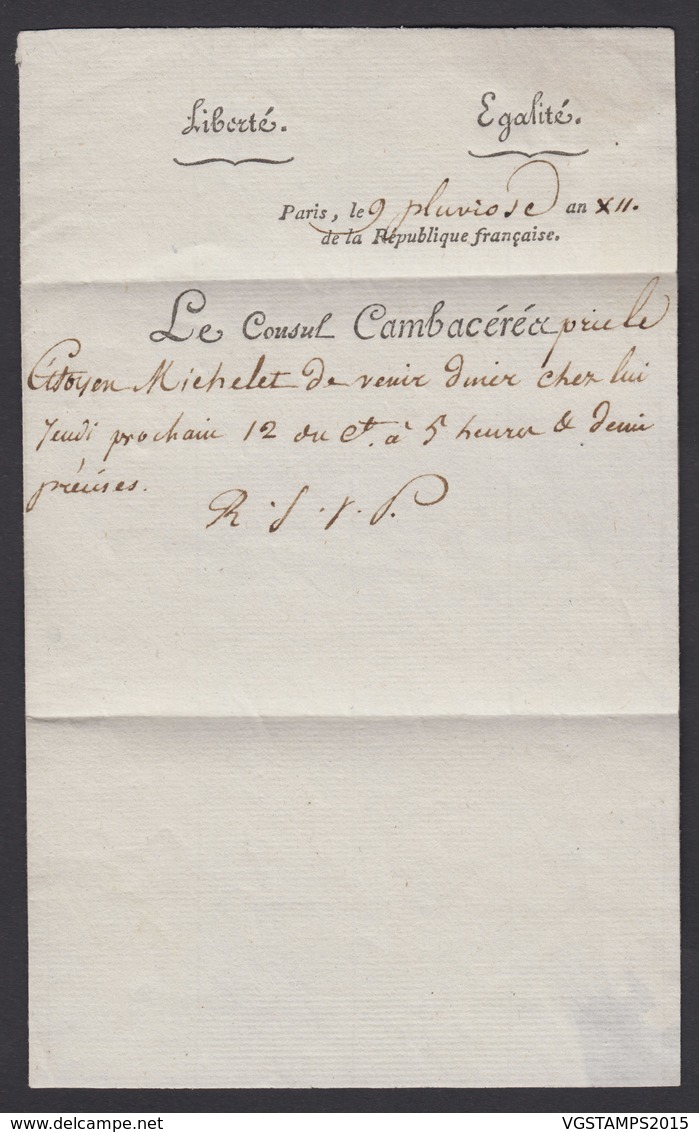 Liberté. Egalité.
Paris, le 9 pluviose an XII.
de la République française.
Le Consul Cambacérés prie le
Citoyen Michelet de venir diner chez lui
Jeudi prochain 12 du Ct. à 5 heures & demi
précises.
R. S. V. P.
VGSTAMPS2015